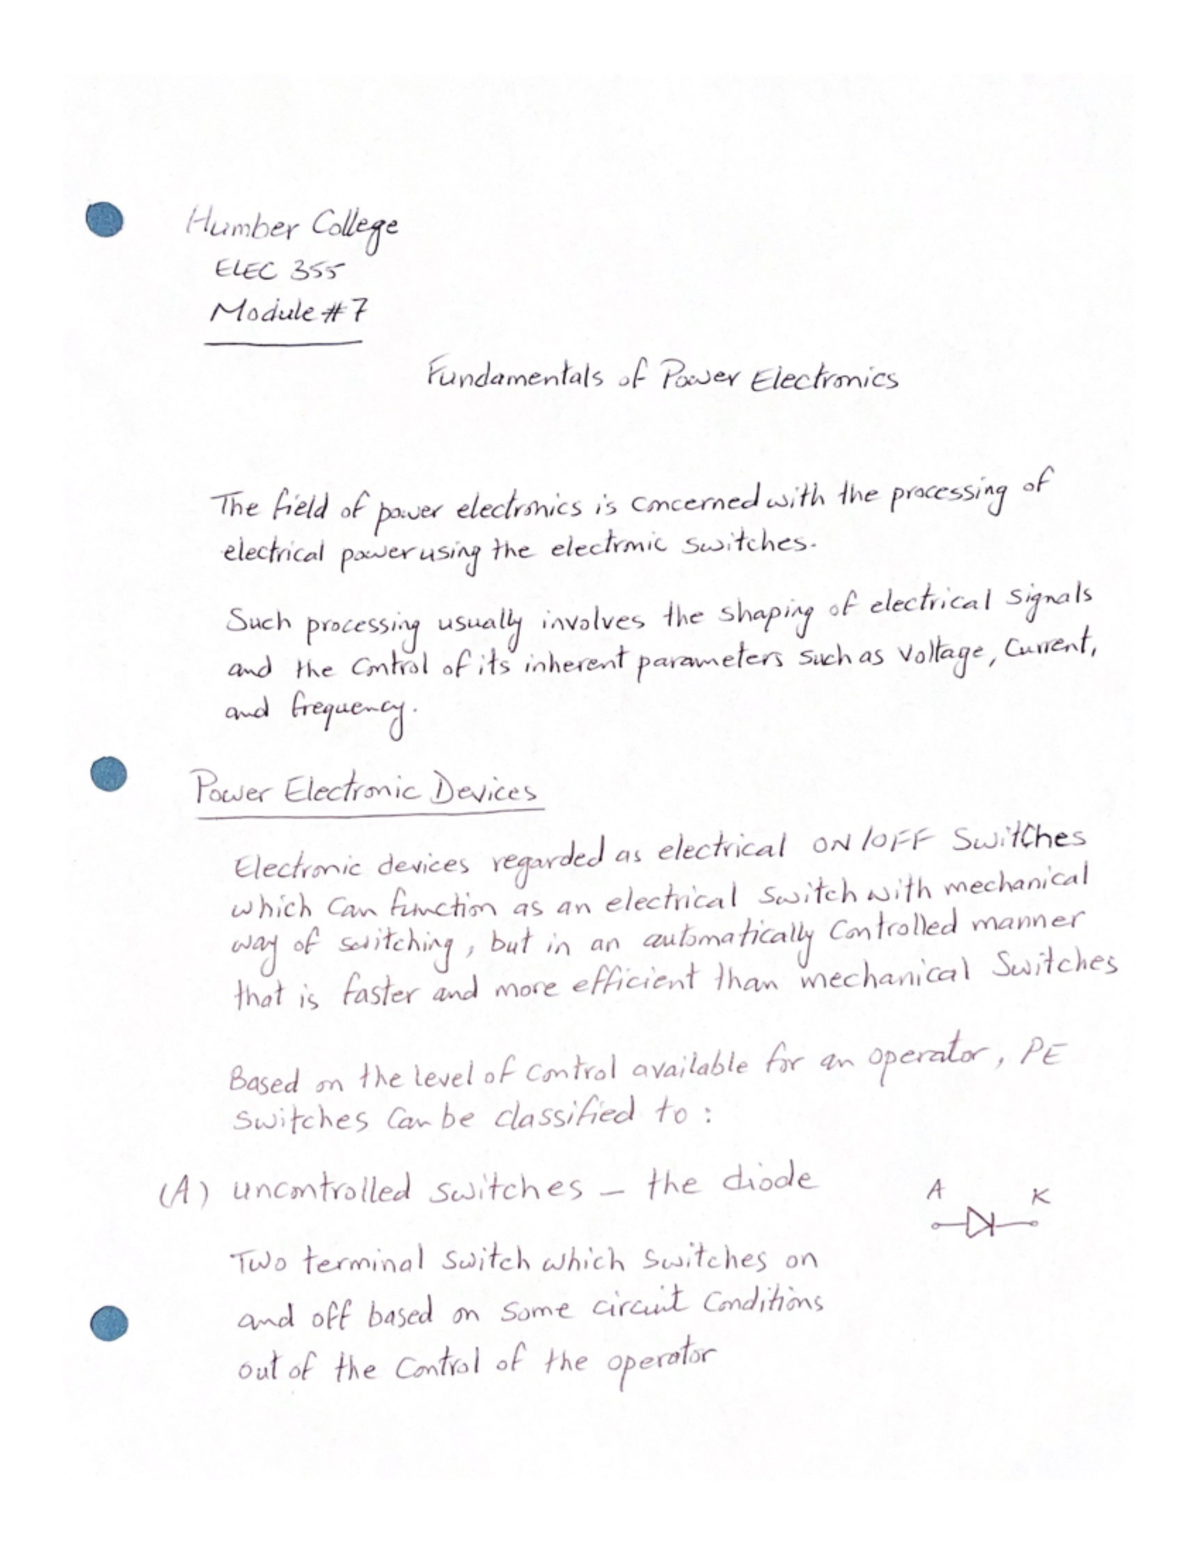 Humber College
ELEC 355
Module #7
Fundamentals of Power Electronics
The field of power electronics is concerned with the processing of
electrical power using the electronic switches.
Such processing usually involves the shaping of electrical signals
and the control of its inherent parameters such as voltage, current,
and frequency.
Power Electronic Devices
Electronic devices regarded as electrical ON/OFF switches
which can function as an electrical switch with mechanical
way of switching, but in an automatically controlled manner
that is faster and more efficient than mechanical switches
Based on the level of control available for an operator, PE
switches can be classified to:
(A) uncontrolled switches – the diode
A K
Two terminal switch which switches on
and off based on some circuit conditions
out of the control of the operator